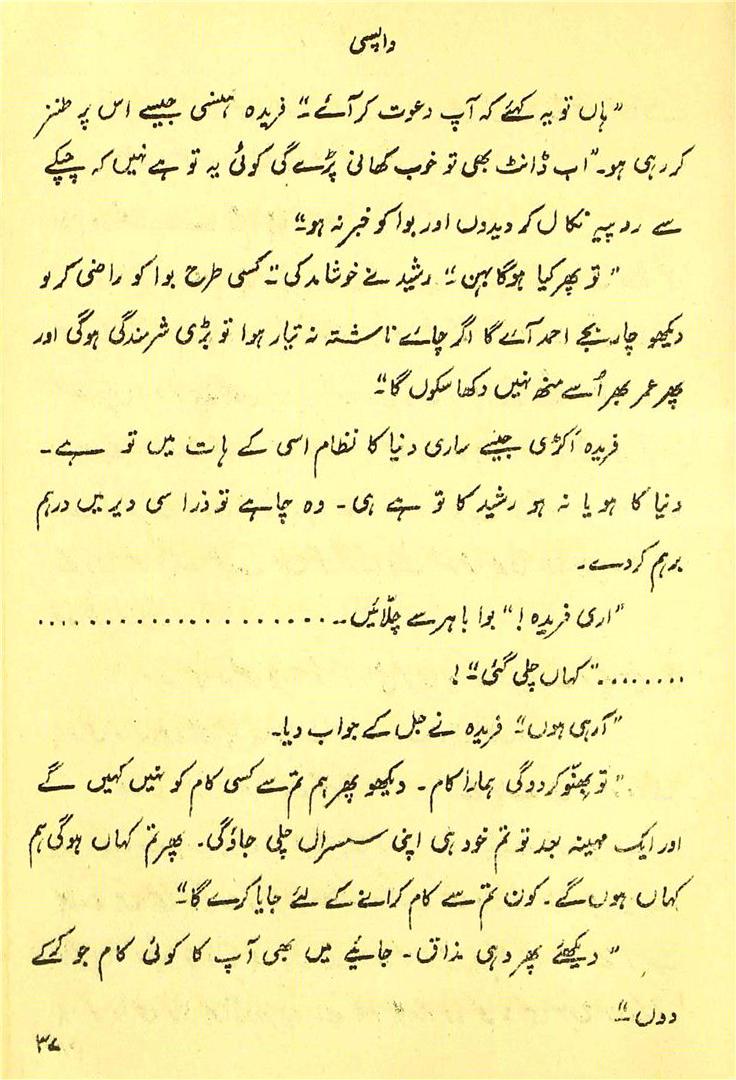 واپسی
"ہاں تو یہ کہئے کہ آپ دعوت کر آئے۔" فریدہ ہنسی جیسے اس پر طنز
کر رہی ہو۔ "اب ڈانٹ بھی تو خوب کھانی پڑے گی کوئی یہ تو ہے نہیں کہ چپکے
سے روپیہ نکال کر دیدوں اور بوا کو خبر نہ ہو۔"
"تو پھر کیا ہوگا بہن۔" رشید نے خوشامد کی۔ "کسی طرح بوا کو راضی کر لو
دیکھو چار بجے احمد آئے گا اگر چائے ناشتہ نہ تیار ہوا تو بڑی شرمندگی ہوگی اور
پھر عمر بھر اُسے منھ نہیں دکھا سکوں گا۔"
فریدہ اکڑی جیسے ساری دنیا کا نظام اسی کے ہات میں تو ہے۔
دنیا کا ہو یا نہ ہو رشید کا تو ہے ہی۔ وہ چاہے تو ذرا سی دیر میں درہم
برہم کر دے۔
"اری فریدہ!" بوا باہر سے چلّائیں۔ .....................
........ "کہاں چلی گئی۔"!
"آرہی ہوں۔" فریدہ نے جل کے جواب دیا۔
"تو بھنّو کردوگی ہمارا کام۔ دیکھو پھر ہم تم سے کسی کام کو نہیں کہیں گے
اور ایک مہینہ بعد تو تم خود ہی اپنی سسرال چلی جاؤگی۔ پھر تم کہاں ہوگی ہم
کہاں ہوں گے۔ کون تم سے کام کرانے کے لئے جایا کرے گا۔"
"دیکھئے پھر وہی مذاق۔ جائیے میں بھی آپ کا کوئی کام جو کرکے
دوں۔"
۳۷